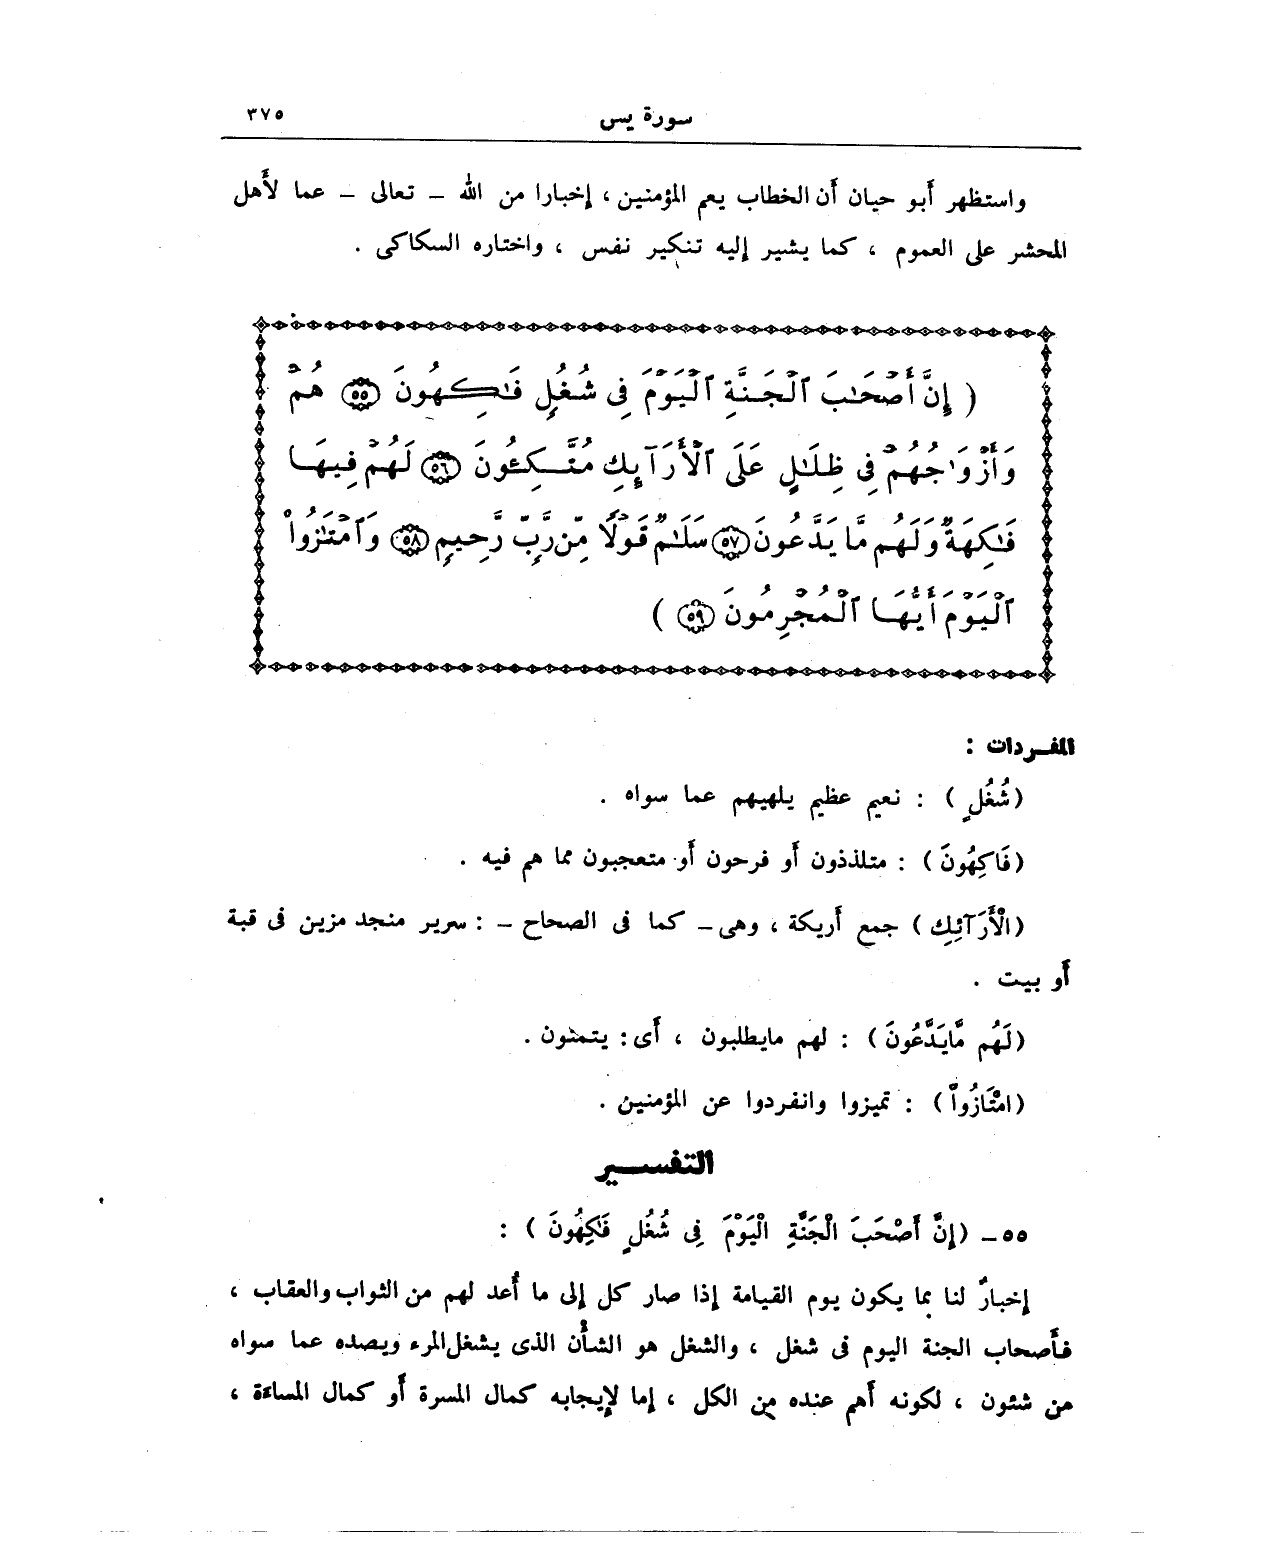 سورة يس
٣٧٥
واستظهر أبو حيان أن الخطاب يعم المؤمنين ، إخبارا من الله – تعالى – عما لأهل
المحشر على العموم ، كما يشير إليه تنكير نفس ، واختاره السكاكى .
( إِنَّ أَصْحَٰبَ ٱلْجَنَّةِ ٱلْيَوْمَ فِى شُغُلٍ فَٰكِهُونَ ٥٥ هُمْ
وَأَزْوَٰجُهُمْ فِى ظِلَٰلٍ عَلَى ٱلْأَرَآئِكِ مُتَّكِـُٔونَ ٥٦ لَهُمْ فِيهَا
فَٰكِهَةٌ وَلَهُم مَّا يَدَّعُونَ ٥٧ سَلَٰمٌ قَوْلًا مِّن رَّبٍّ رَّحِيمٍ ٥٨ وَٱمْتَٰزُوا۟
ٱلْيَوْمَ أَيُّهَا ٱلْمُجْرِمُونَ ٥٩ )
المفـردات :
(شُغُلٍ ) : نعيم عظيم يلهيهم عما سواه .
(فَاكِهُونَ ) : متلذذون أو فرحون أو متعجبون مما هم فيه .
(الْأَرَآئِكِ ) جمع أريكة ، وهى – كما فى الصحاح – : سرير منجد مزين فى قبة
أو بيت .
(لَهُم مَّايَدَّعُونَ ) : لهم مايطلبون ، أى : يتمنون .
(امْتَازُواْ ) : تميزوا وانفردوا عن المؤمنين .
التفسـير
٥٥ – (إِنَّ أَصْحَبَ الْجَنَّةِ الْيَوْمَ فِى شُغُلٍ فَكِهُونَ ) :
إخبارٌ لنا بما يكون يوم القيامة إذا صار كل إلى ما أُعد لهم من الثواب والعقاب ،
فأصحاب الجنة اليوم فى شغل ، والشغل هو الشأن الذى يشغل المرء ويصده عما سواه
من شئون ، لكونه أهم عنده من الكل ، إما لإيجابه كمال المسرة أو كمال المساءة ،